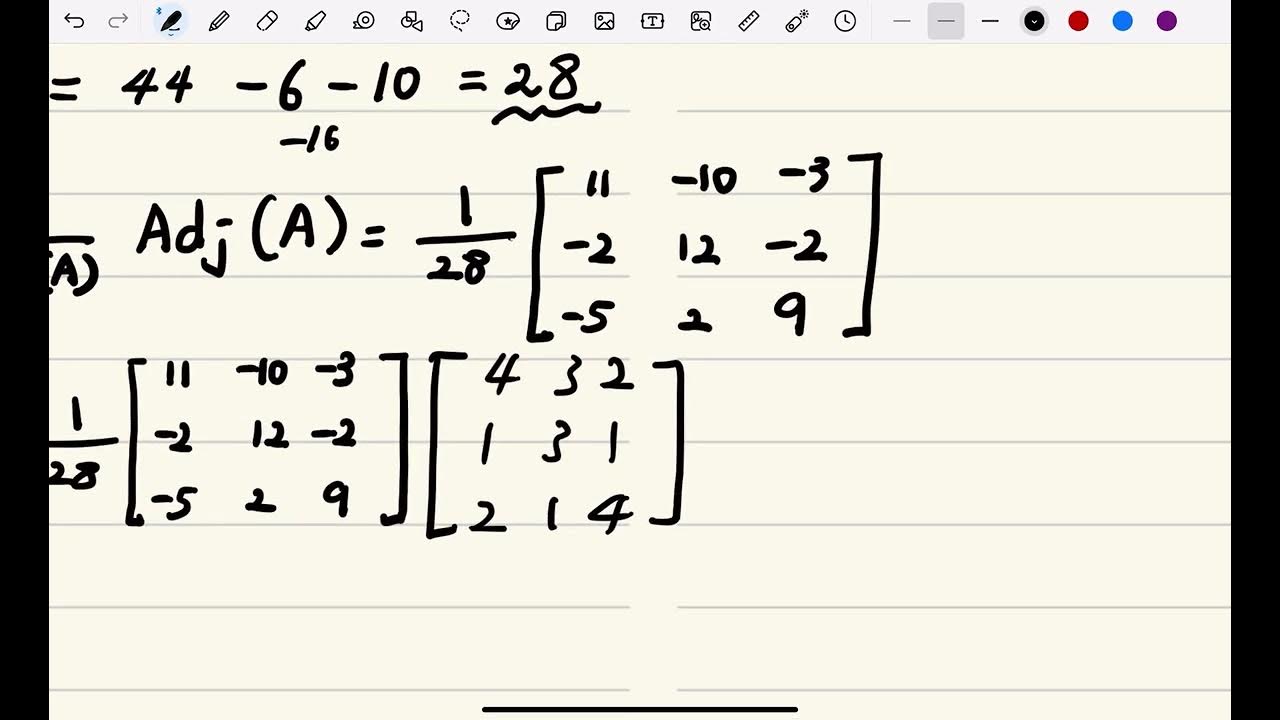 = 44 -6 -10 = 28
-16
(A) Adj(A) = 1/28 [11 -10 -3
-2 12 -2
-5 2 9]
1/28 [11 -10 -3] [4 3 2]
[-2 12 -2] [1 3 1]
[-5 2 9] [2 1 4]